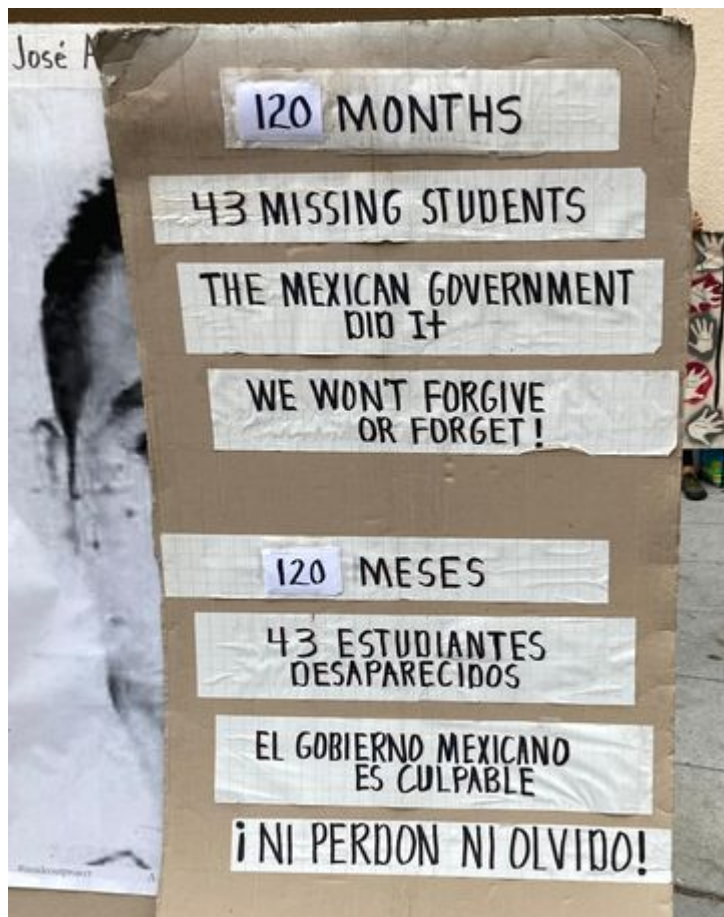 José A
120 MONTHS
43 MISSING STUDENTS
THE MEXICAN GOVERNMENT
DID It
WE WON'T FORGIVE
OR FORGET!
120 MESES
43 ESTUDIANTES
DESAPARECIDOS
EL GOBIERNO MEXICANO
ES CULPABLE
¡NI PERDON NI OLVIDO!